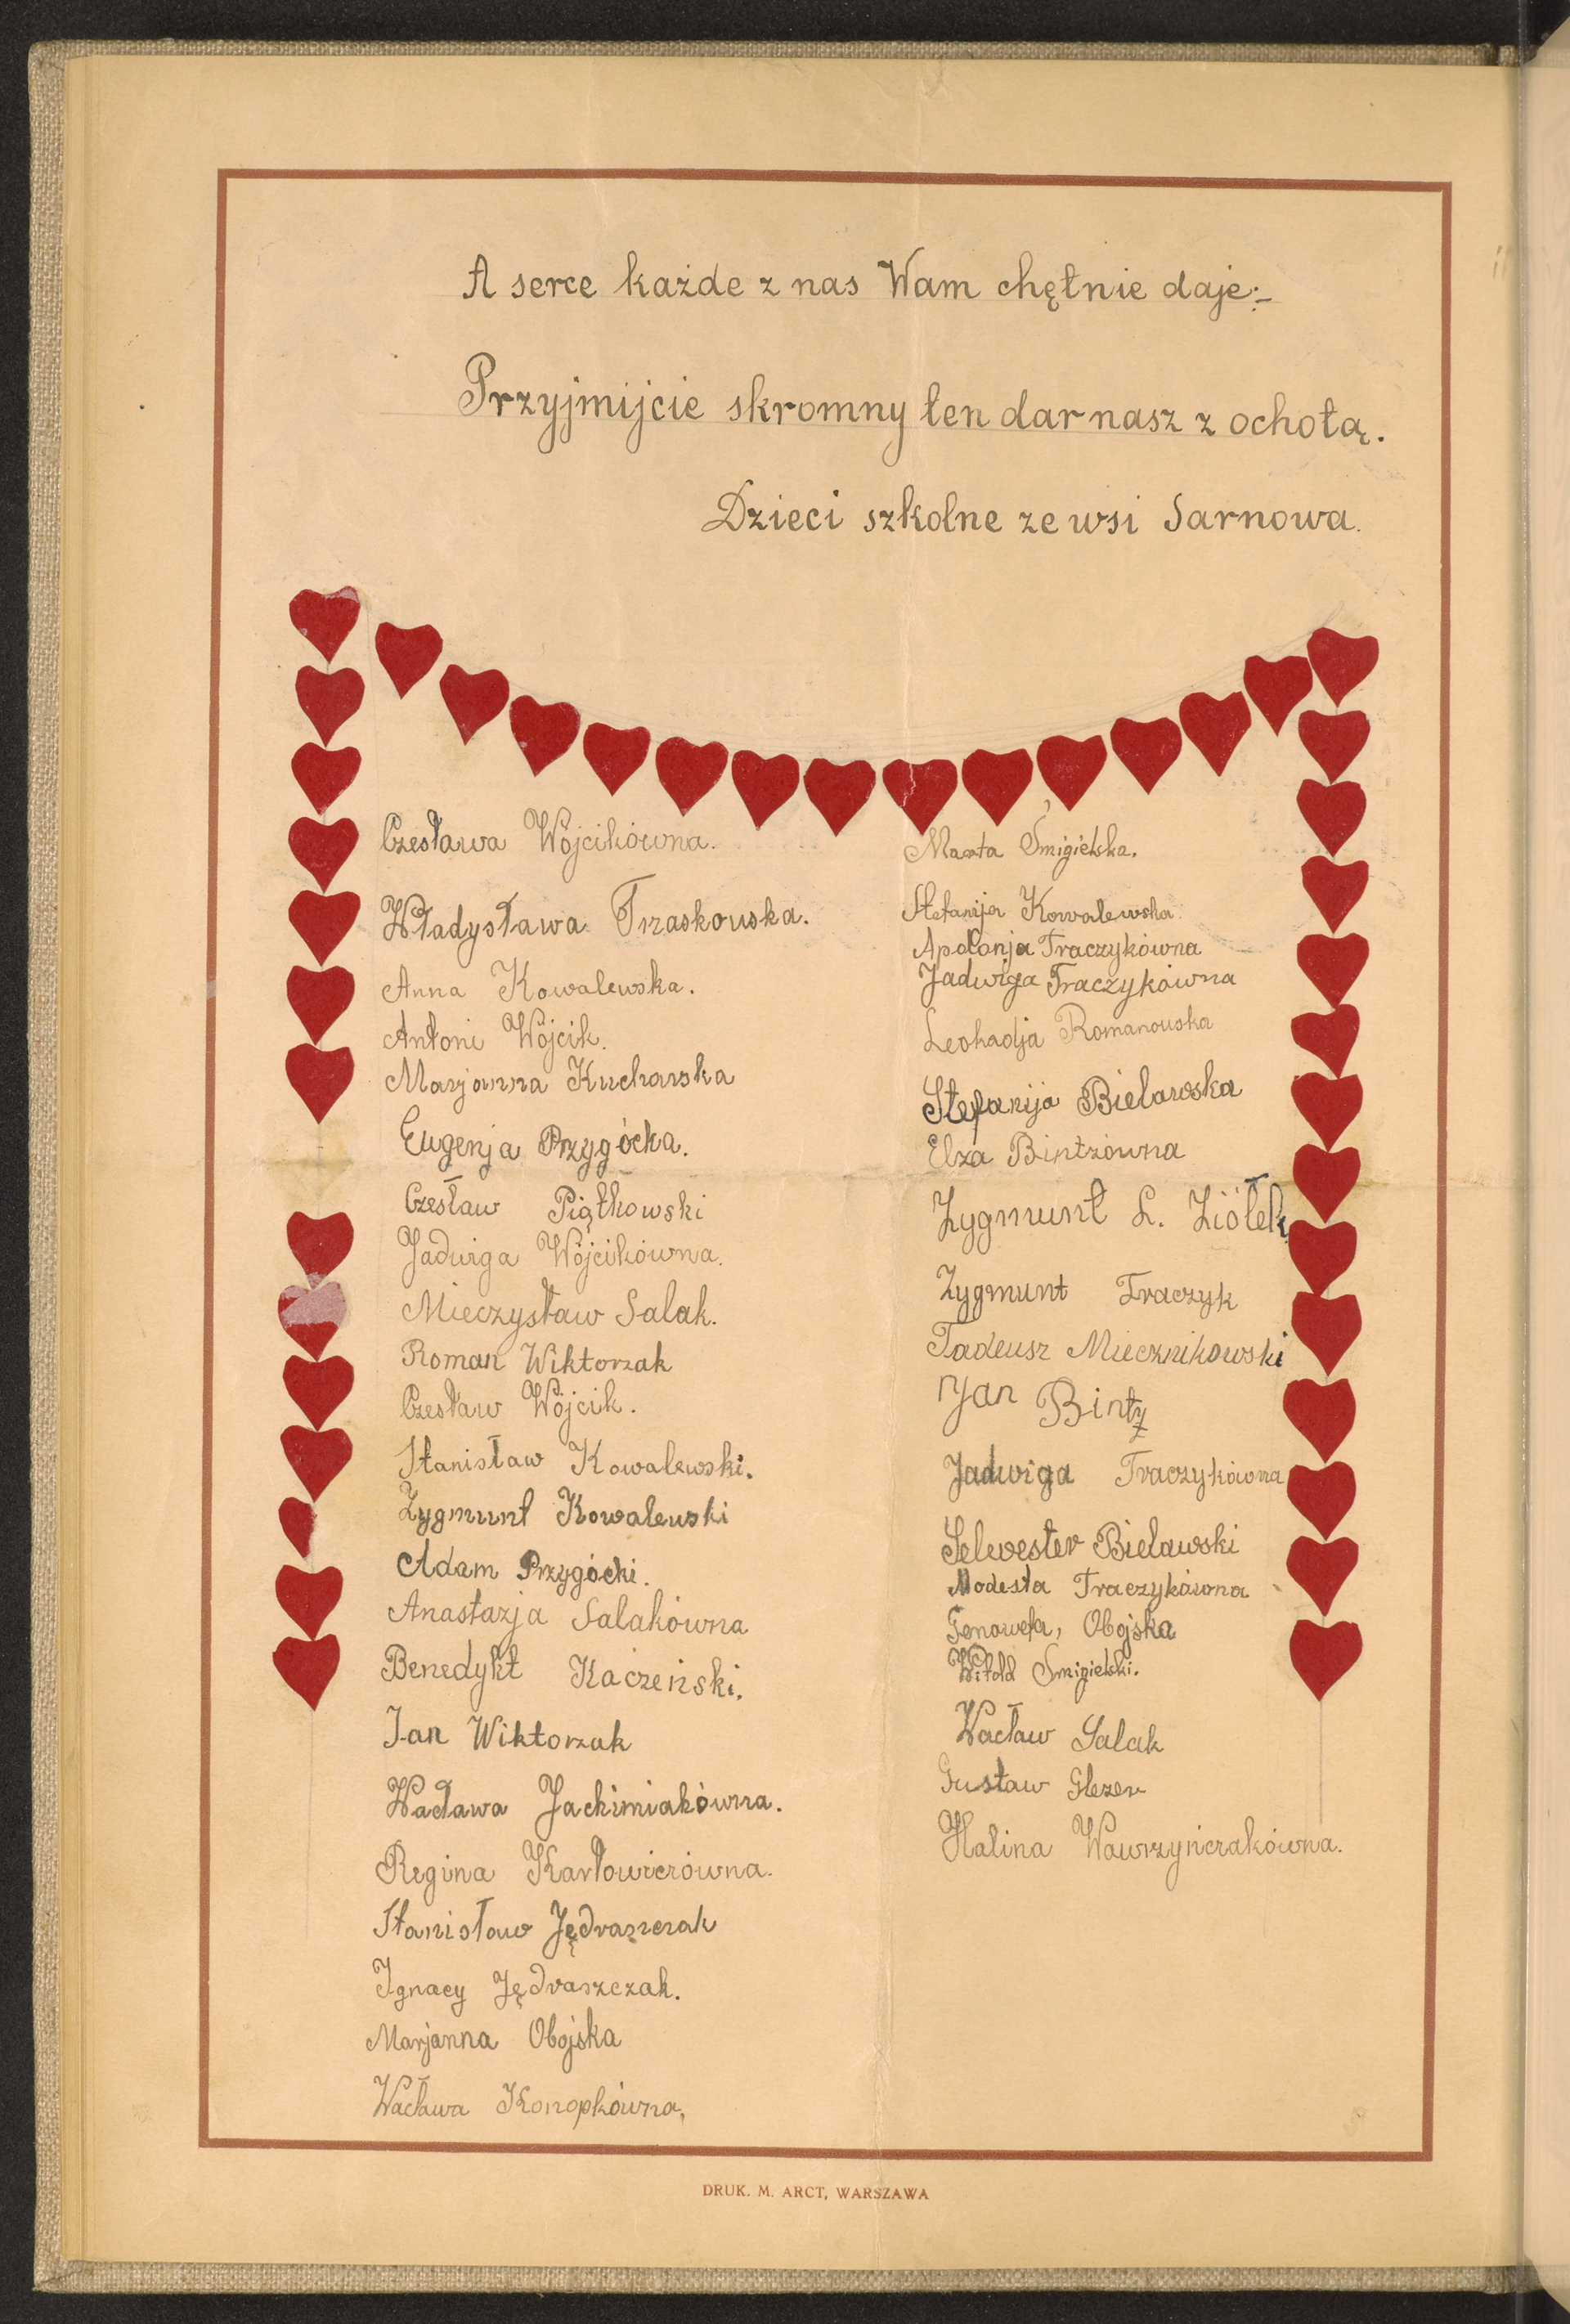 A serce każde z nas Wam chętnie daje:-
Przyjmijcie skromny ten dar nasz z ochotą.
Dzieci szkolne ze wsi Sarnowa.
Czesława Wójcikówna.
Władysława Trzaskowska.
Anna Kowalewska.
Antoni Wójcik.
Marjanna Kucharska
Eugenja Przygócka.
Czesław Piątkowski
Jadwiga Wójcikówna.
Mieczysław Salak.
Roman Wiktorzak
Czesław Wójcik.
Stanisław Kowalewski.
Zygmunt Kowalewski
Adam Przygócki.
Anastazja Salakówna
Benedykt Kaczeński.
Jan Wiktorzak
Wacława Jachimiakówna.
Regina Karłowiczówna.
Stanisław Jędraszczak
Ignacy Jędraszczak.
Marjanna Obojska
Wacława Konopkówna,
Marta Śmigielska.
Stefanija Kowalewska.
Apolonja Traczykówna
Jadwiga Traczykówna
Leokadja Romanowska
Stefanija Bielawska
Elza Bintzówna
Zygmunt L. Ziółek,
Zygmunt Traczyk
Tadeusz Miecznikowski
Jan Bintz
Jadwiga Traczykówna
Selwester Bielawski
Modesta Traczykówna
Genowefa, Obojska
Witold Śmigielski.
Wacław Salak
Gustaw Glezer
Halina Wawrzyńczakówna.
DRUK. M. ARCT, WARSZAWA